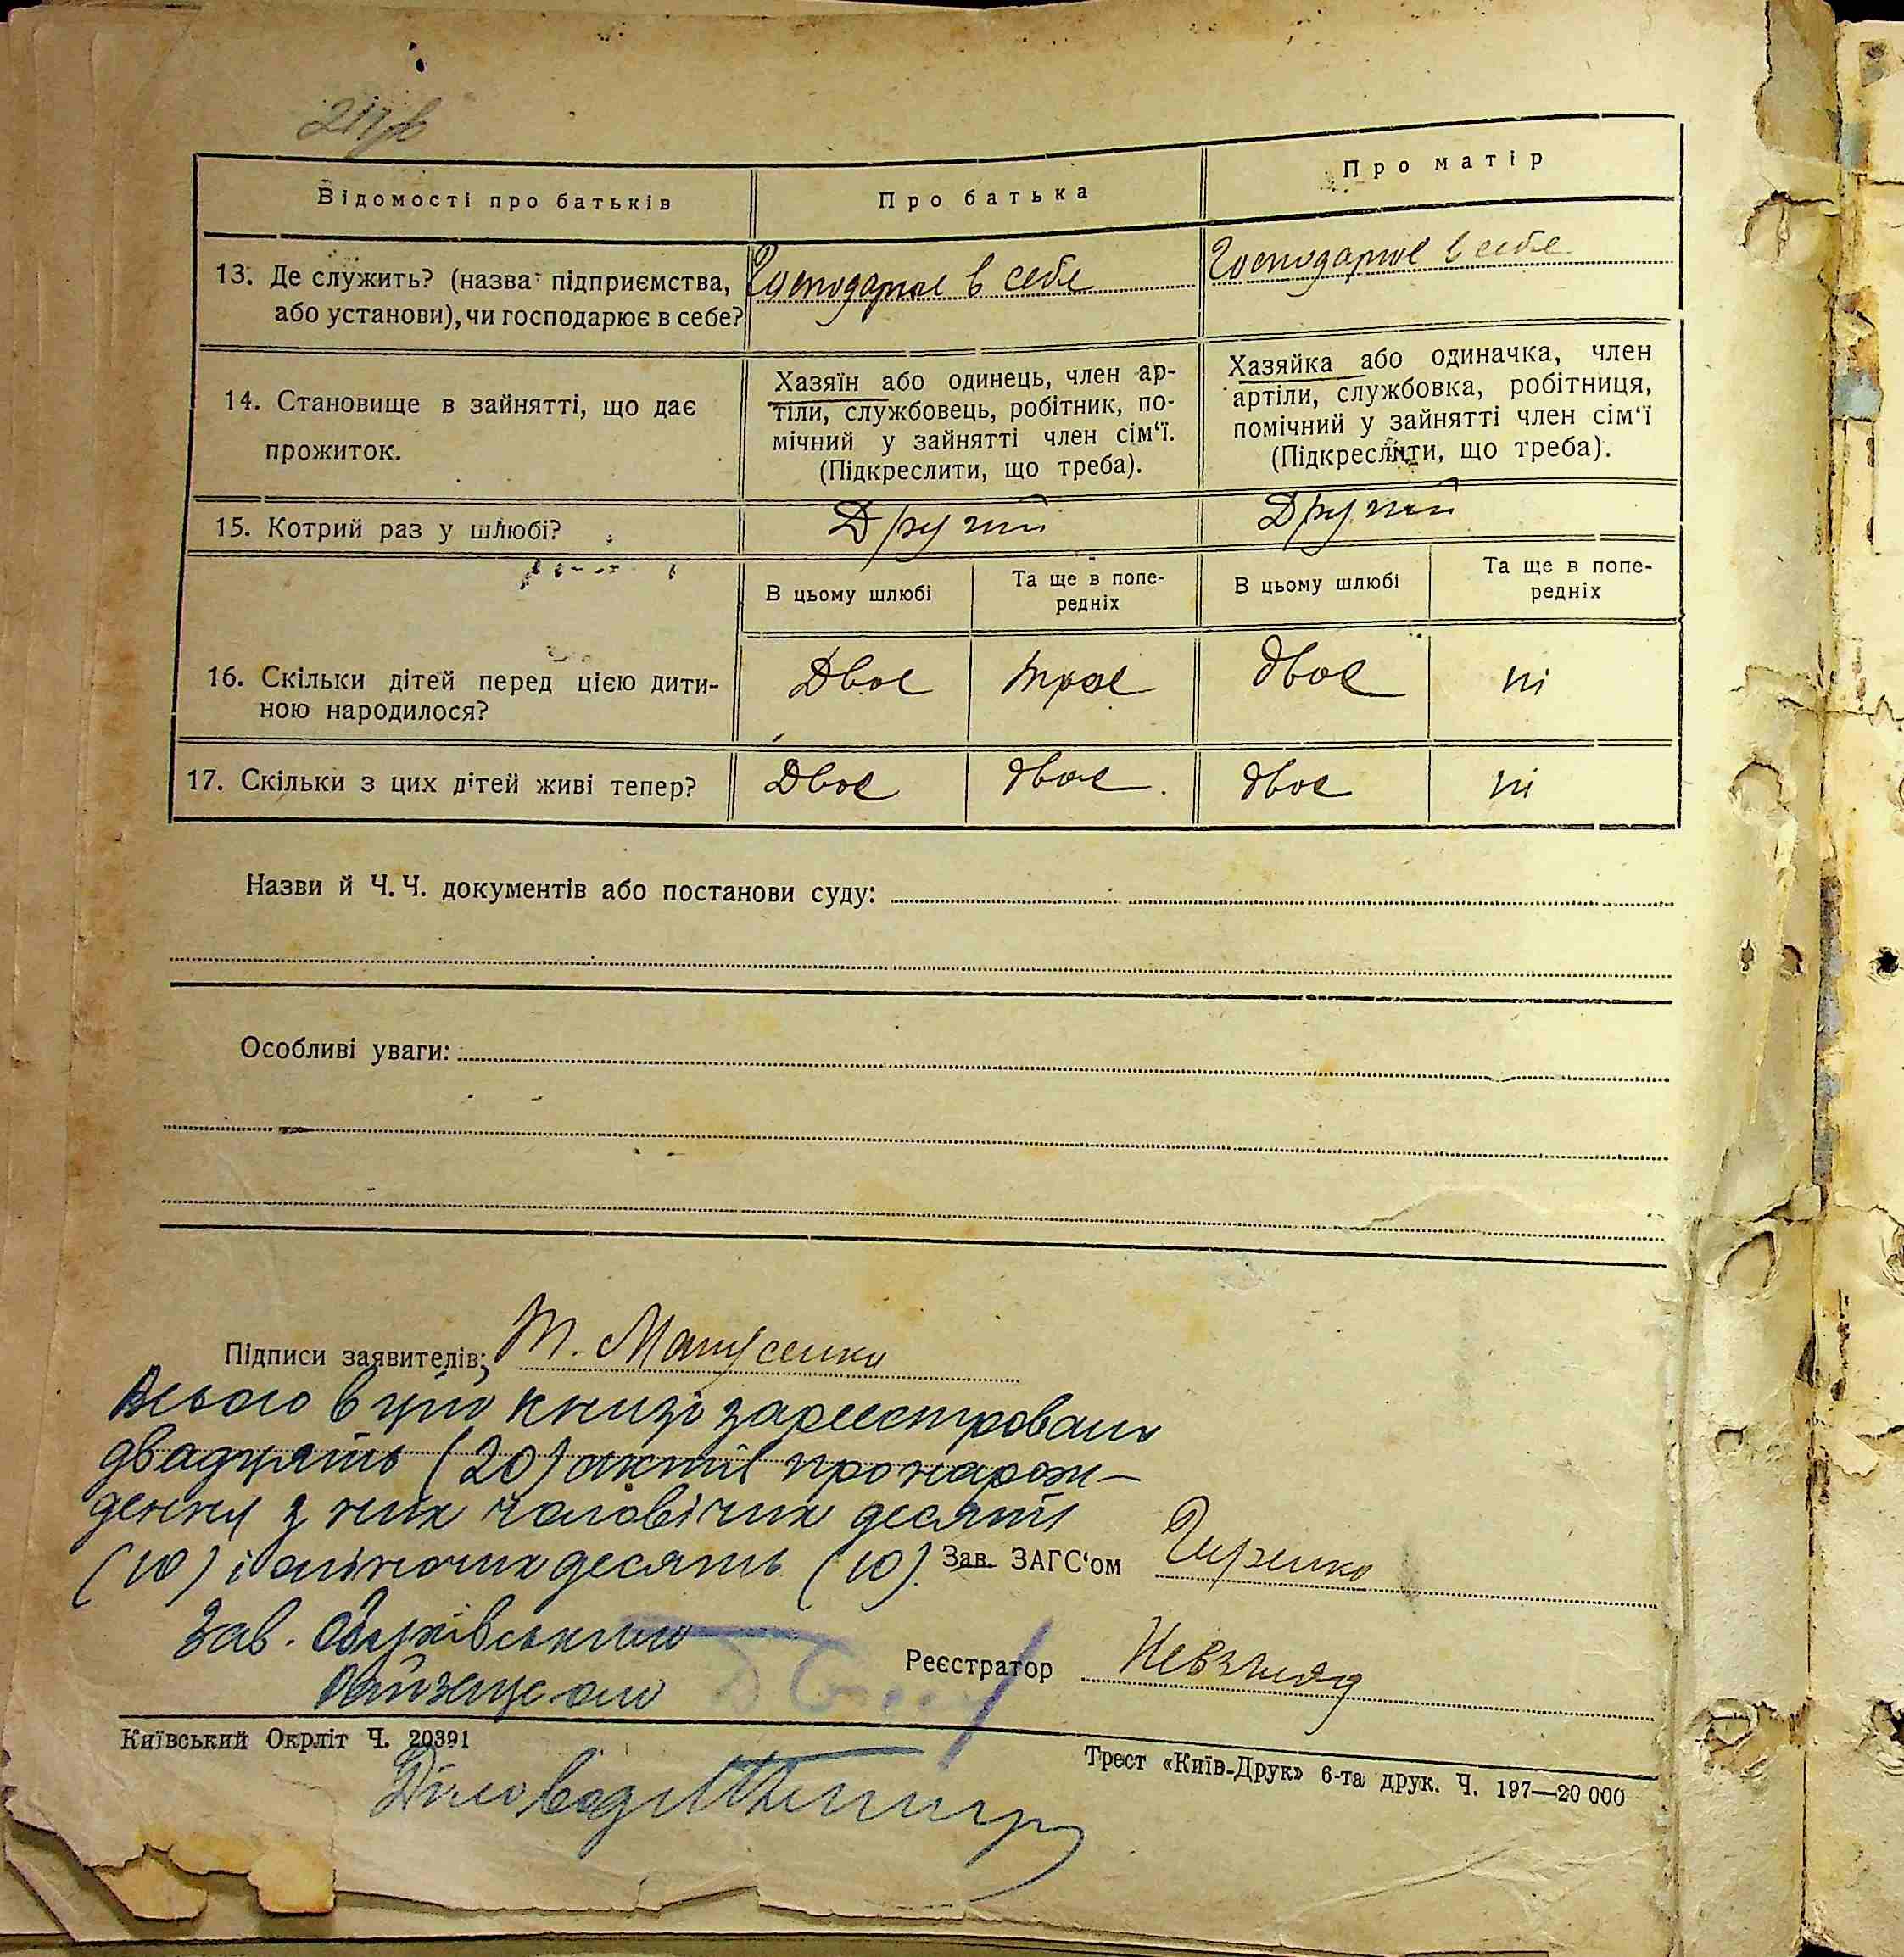 Відомості про батьків
Про батька
Про матір
13. Де служить? (назва підприємства,
або установи), чи господарює в себе?
Господарює в себе
Господарює в себе
14. Становище в зайнятті, що дає
прожиток.
Хазяїн або одинець, член ар-
тіли, службовець, робітник, по-
мічний у зайнятті член сім‘ї.
(Підкреслити, що треба).
Хазяйка або одиначка, член
артіли, службовка, робітниця,
помічний у зайнятті член сім‘ї
(Підкреслити, що треба).
15. Котрий раз у шлюбі?
Другий
Другий
В цьому шлюбі
Та ще в попе-
редніх
В цьому шлюбі
Та ще в попе-
редніх
16. Скільки дітей перед цією дити-
ною народилося?
Двоє
троє
двоє
ні
17. Скільки з цих дітей живі тепер?
Двоє
двоє.
двоє
ні
Назви й Ч. Ч. документів або постанови суду:
Особливі уваги:
Підписи заявителів: Т. Матусенко
Всього в цій книзі зареестровано
двадцять (20) актів про нарож-
дення з них чоловічих десять
(10) і жіночих десять (10).
Зав. ЗАГС‘ом
Зав. Обухівським
Райзагсом
Реєстратор Невзгляд
Київський Окрліт Ч. 20391
Трест «Київ-Друк» 6-та друк. Ч. 197—20 000
Діловод